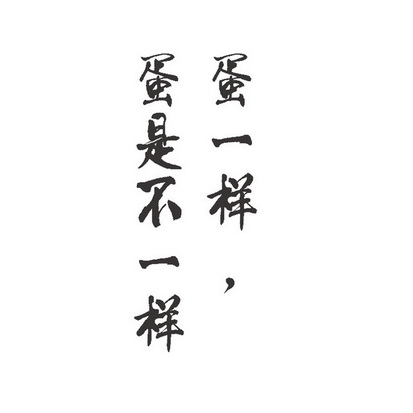 蛋一样，
蛋是不一样